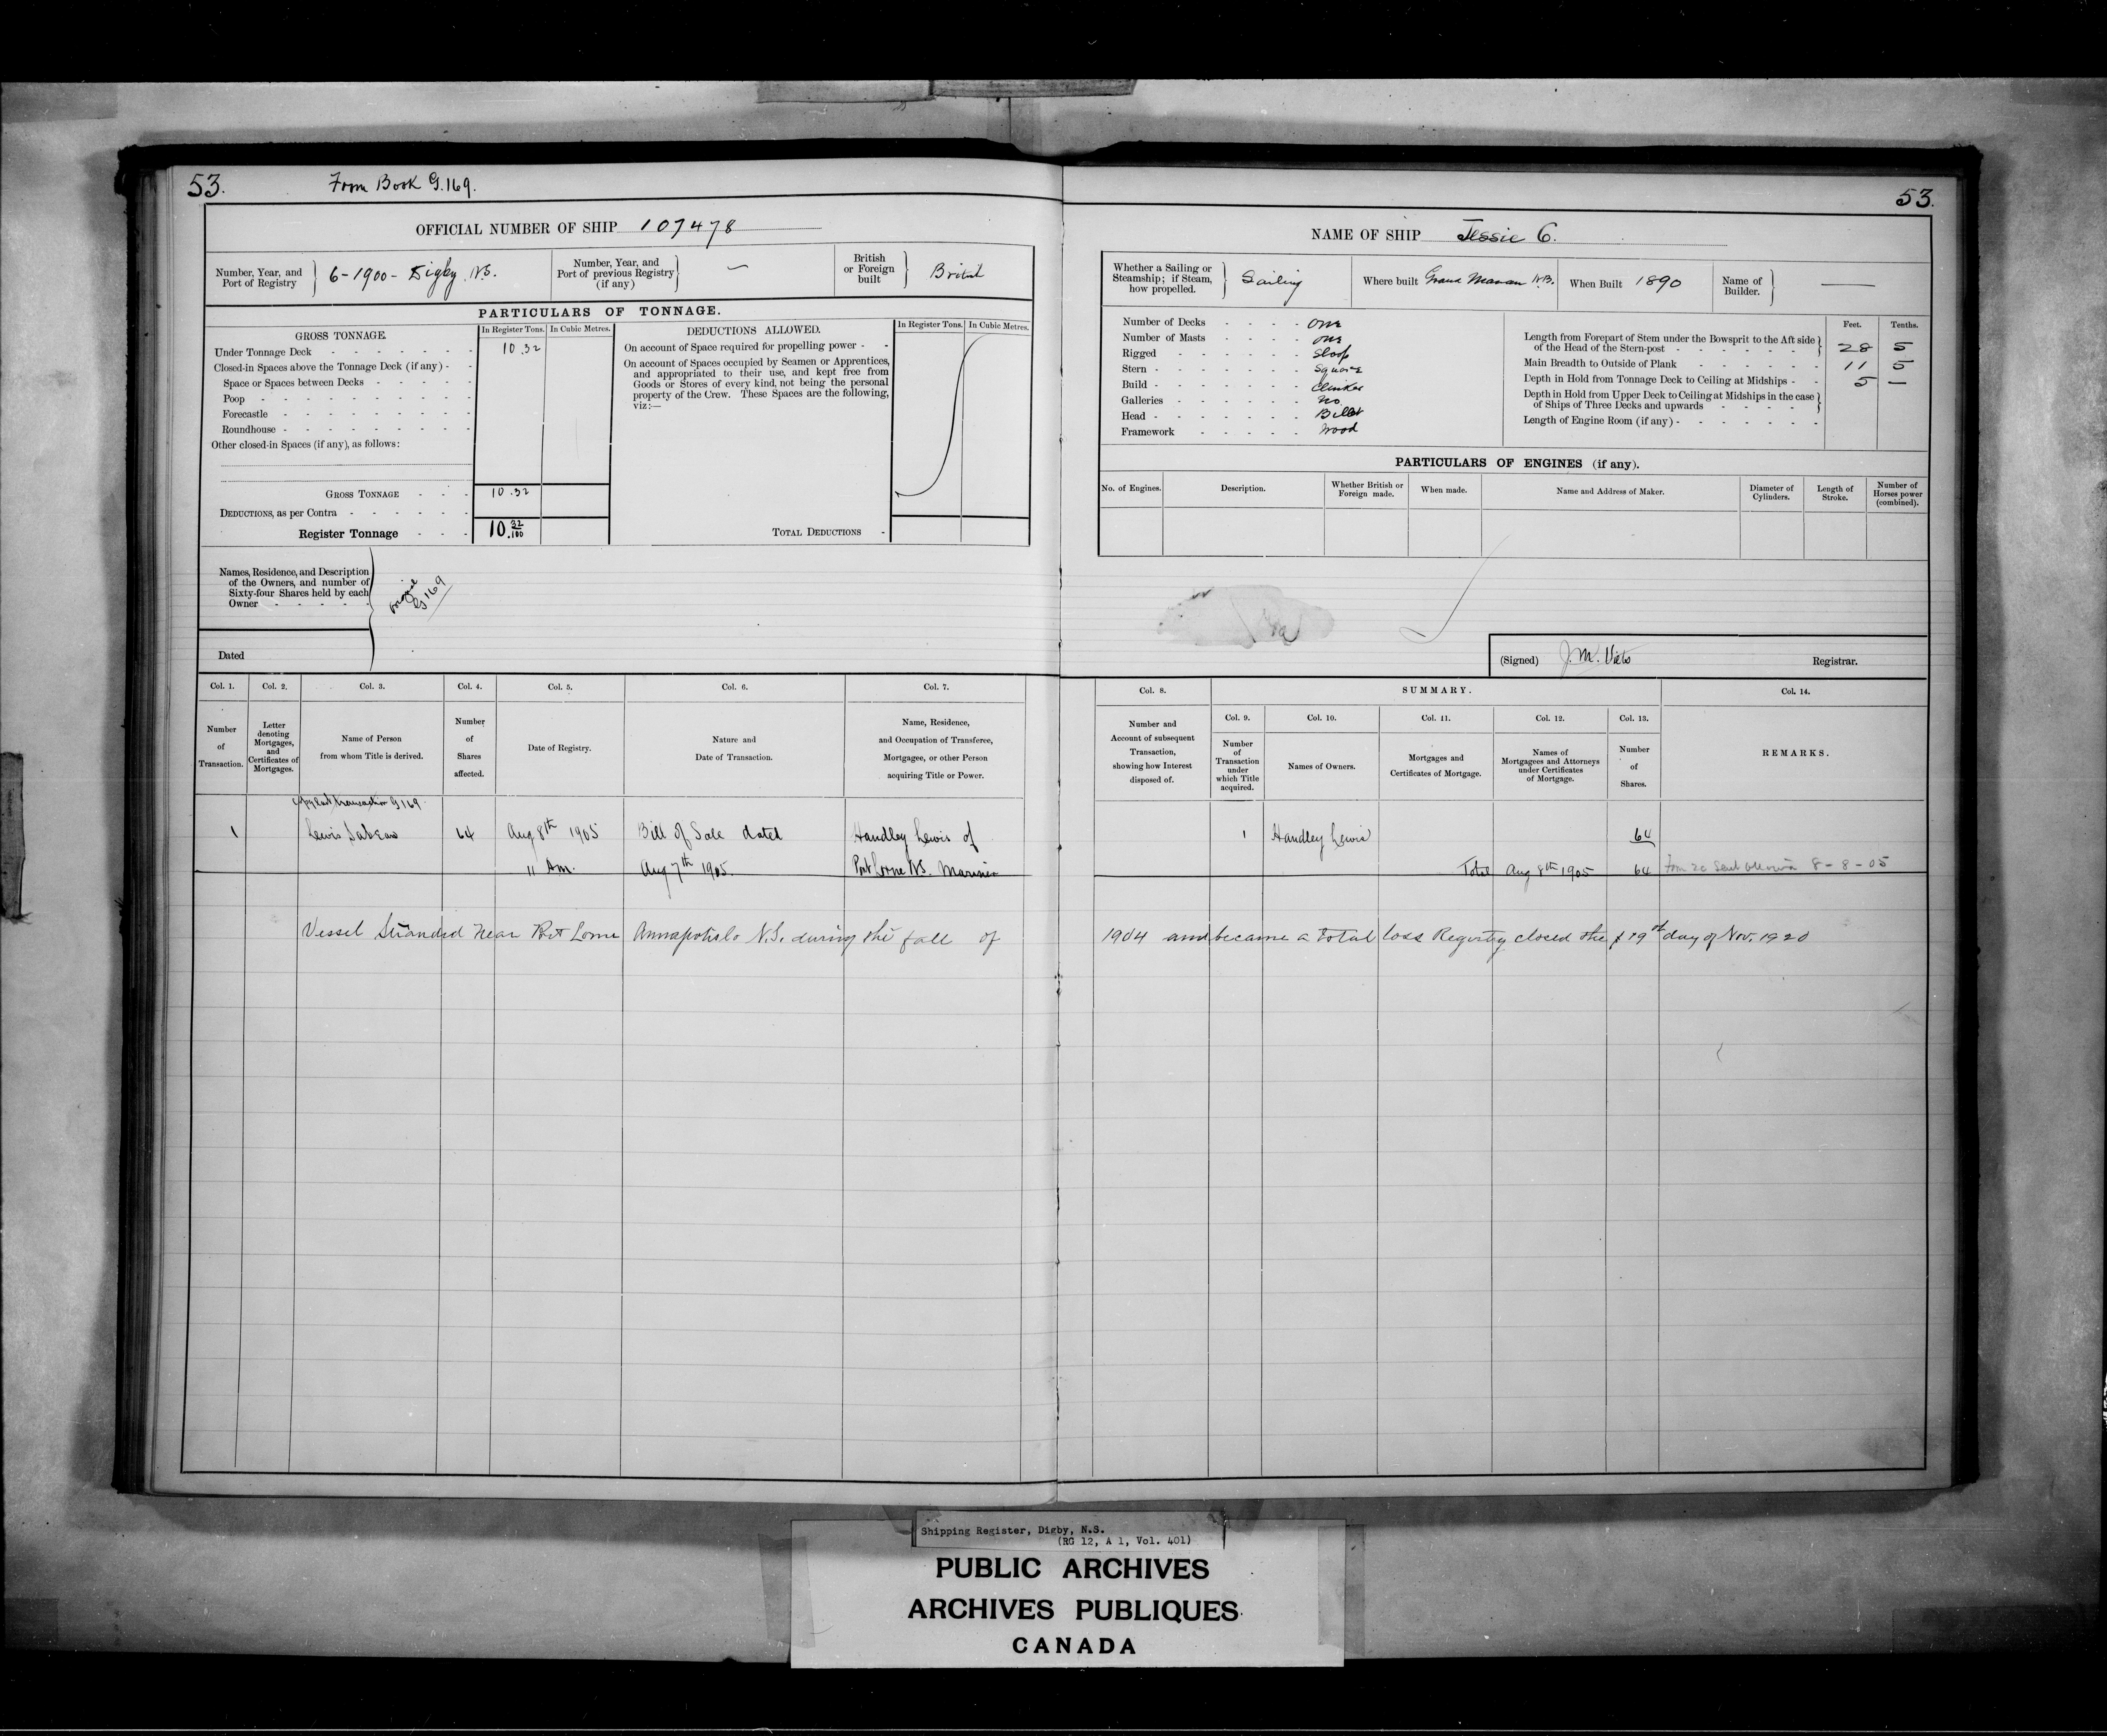 53.
From Book G.169.
53.
OFFICIAL NUMBER OF SHIP 107478
Number, Year, and Port of Registry } 6-1900- Digby, N.S.
Number, Year, and Port of previous Registry (if any) } —
British or Foreign built } British
PARTICULARS OF TONNAGE.
GROSS TONNAGE.
In Register Tons. In Cubic Metres.
Under Tonnage Deck - - - - - - 10.32
Closed-in Spaces above the Tonnage Deck (if any) - -
Space or Spaces between Decks - - - - -
Poop - - - - - - - - -
Forecastle - - - - - - - -
Roundhouse - - - - - - - -
Other closed-in Spaces (if any), as follows:
GROSS TONNAGE - - - 10.32
DEDUCTIONS, as per Contra - - - - - -
Register Tonnage - - - 10.32/100
DEDUCTIONS ALLOWED.
In Register Tons. In Cubic Metres.
On account of Space required for propelling power - -
On account of Spaces occupied by Seamen or Apprentices,
and appropriated to their use, and kept free from
Goods or Stores of every kind, not being the personal
property of the Crew. These Spaces are the following,
viz:—
TOTAL DEDUCTIONS -
Names, Residence, and Description
of the Owners, and number of
Sixty-four Shares held by each
Owner - - - - -
original
G 169
Dated
NAME OF SHIP Jessie C.
Whether a Sailing or Steamship; if Steam, how propelled. } Sailing
Where built Grand Manan N.B.
When Built 1890
Name of Builder. } —
Number of Decks - - - - One
Number of Masts - - - - One
Rigged - - - - - - Sloop
Stern - - - - - - - Square
Build - - - - - - - Clinker
Galleries - - - - - - No
Head - - - - - - - Billet
Framework - - - - - Wood
Feet. Tenths.
Length from Forepart of Stem under the Bowsprit to the Aft side
of the Head of the Stern-post - - - - - - 28 5
Main Breadth to Outside of Plank - - - - - - 11 5
Depth in Hold from Tonnage Deck to Ceiling at Midships - - 5 —
Depth in Hold from Upper Deck to Ceiling at Midships in the case
of Ships of Three Decks and upwards - - - -
Length of Engine Room (if any) - - - - - - -
PARTICULARS OF ENGINES (if any).
No. of Engines. Description. Whether British or Foreign made. When made. Name and Address of Maker. Diameter of Cylinders. Length of Stroke. Number of Horses power (combined).
(Signed) J. M. Viets Registrar.
Col. 1. Col. 2. Col. 3. Col. 4. Col. 5. Col. 6. Col. 7.
Number of Transaction.
Letter denoting Mortgages, and Certificates of Mortgages.
Name of Person from whom Title is derived.
Number of Shares affected.
Date of Registry.
Nature and Date of Transaction.
Name, Residence, and Occupation of Transferee, Mortgagee, or other Person acquiring Title or Power.
Col. 8. SUMMARY. Col. 14.
Col. 9. Col. 10. Col. 11. Col. 12. Col. 13.
Number and Account of subsequent Transaction, showing how Interest disposed of.
Number of Transaction under which Title acquired.
Names of Owners.
Mortgages and Certificates of Mortgage.
Names of Mortgagees and Attorneys under Certificates of Mortgage.
Number of Shares.
REMARKS.
Copy last transaction G 169.
1 Lewis Sabean 64 Aug 8th 1905 Bill of Sale dated Handley Lewis of
11 Am. Aug 7th 1905. Port Lorne N.S. Mariner
1 Handley Lewis 64
Total Aug 8th 1905 64 Form 20 Sent Ottawa 8-8-05
Vessel Stranded near Port Lorne Annapolis N.S. during the fall of
1904 and became a total loss Registry closed the 19th day of Nov. 1920
Shipping Register, Digby, N.S.
(RG 12, A 1, Vol. 401)
PUBLIC ARCHIVES
ARCHIVES PUBLIQUES
CANADA